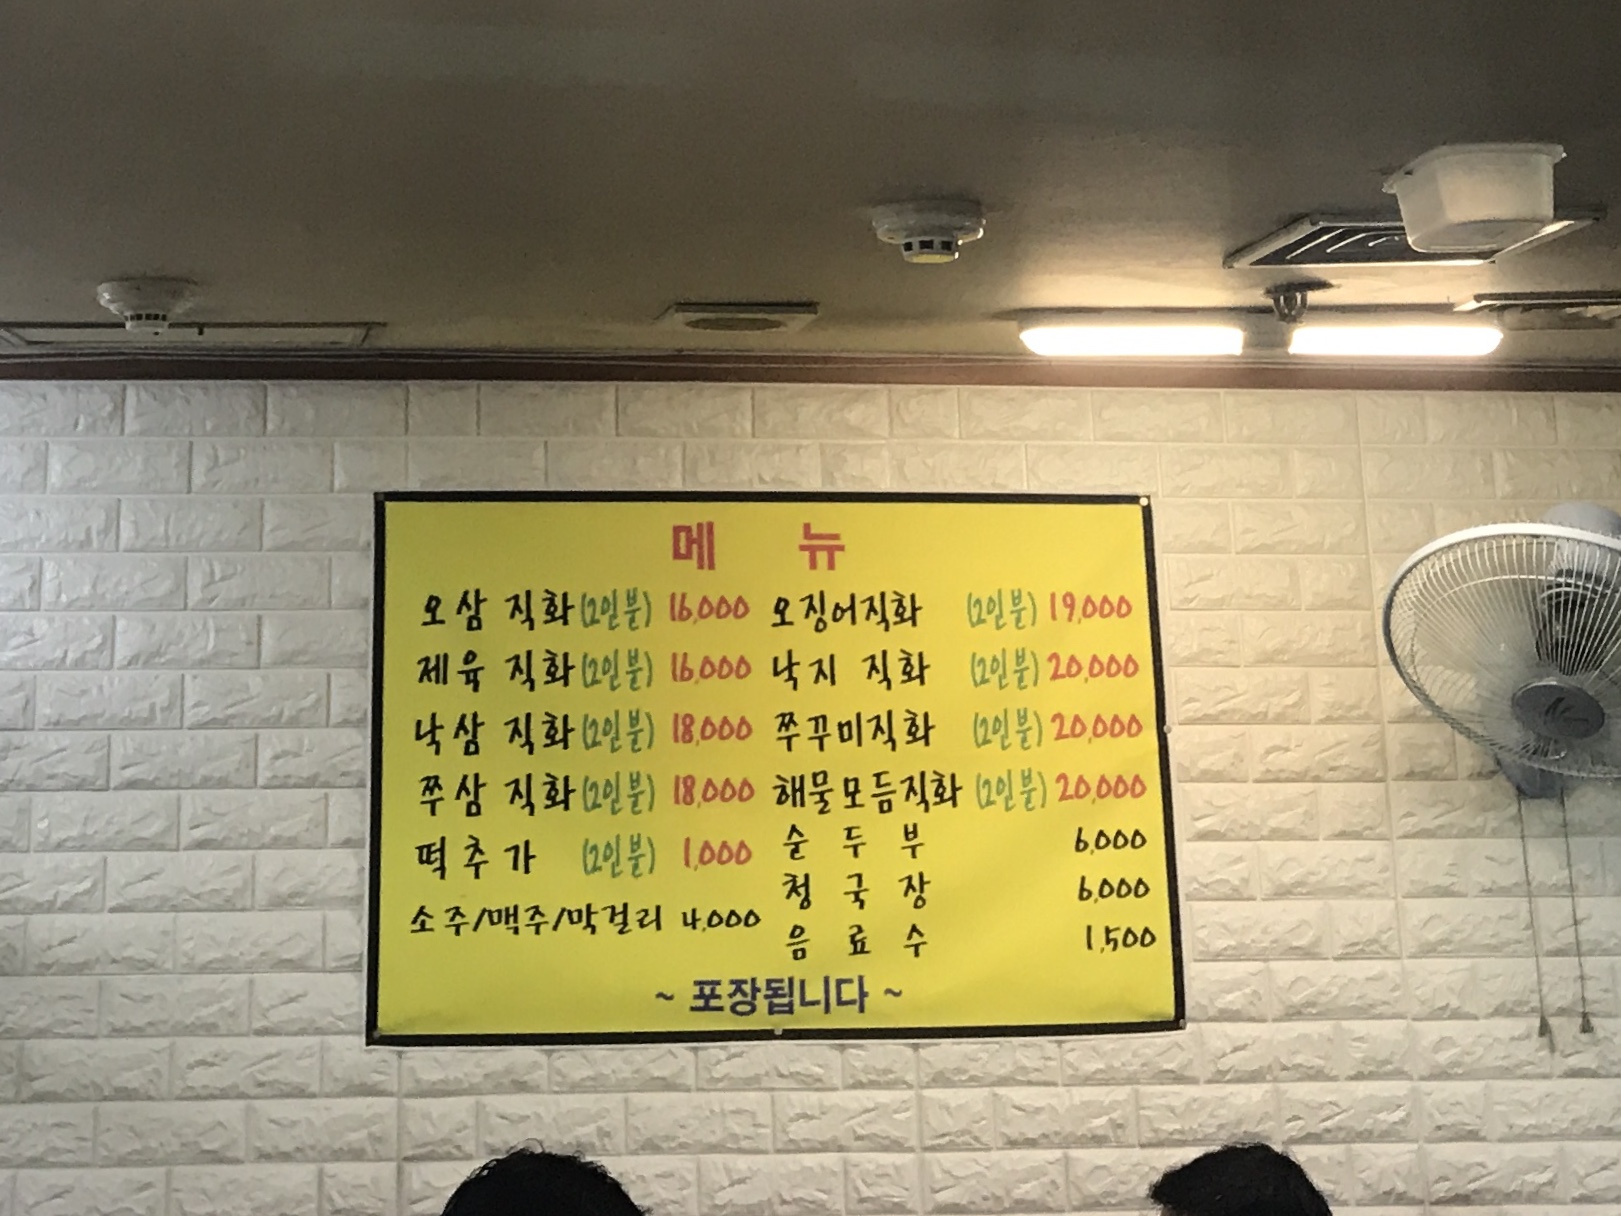 메 뉴
오삼 직화(2인분) 16,000
제육 직화(2인분) 16,000
낙삼 직화(2인분) 18,000
쭈삼 직화(2인분) 18,000
떡추가 (2인분) 1,000
소주/맥주/막걸리 4,000
오징어직화 (2인분) 19,000
낙지 직화 (2인분) 20,000
쭈꾸미직화 (2인분) 20,000
해물모듬직화 (2인분) 20,000
순 두 부 6,000
청 국 장 6,000
음 료 수 1,500
~ 포장됩니다 ~